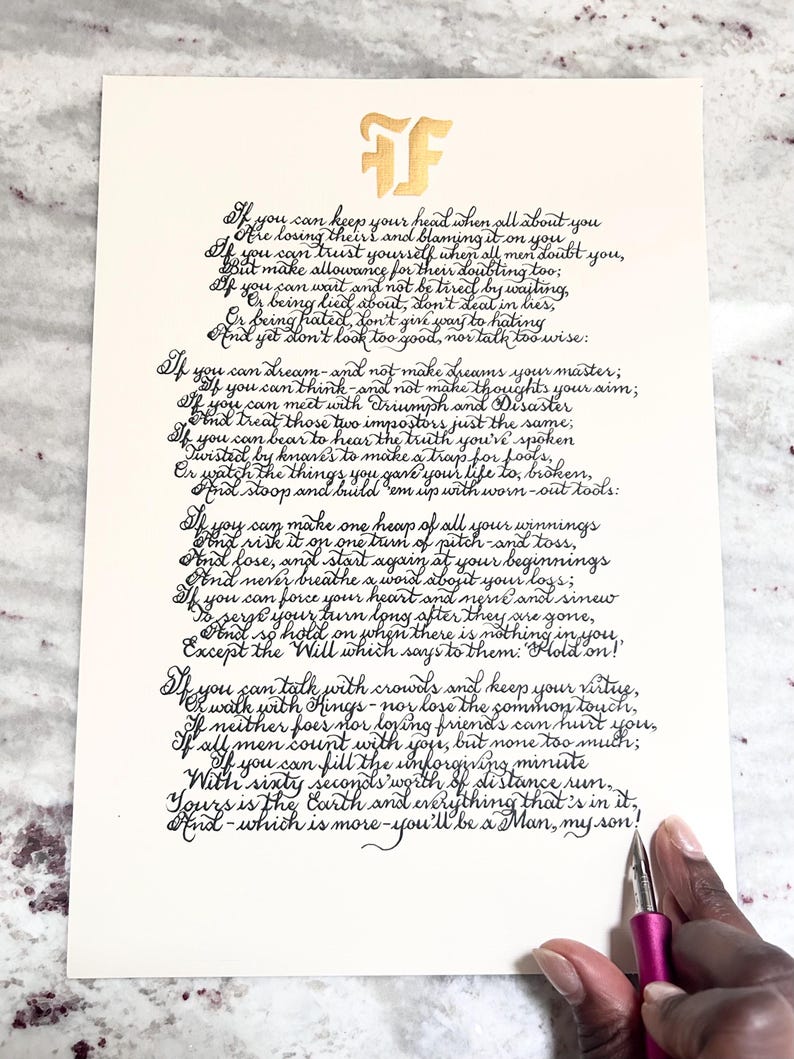 IF
If you can keep your head when all about you
Are losing theirs and blaming it on you
If you can trust yourself when all men doubt you,
But make allowance for their doubting too;
If you can wait and not be tired by waiting,
Or being lied about, don't deal in lies,
Or being hated, don't give way to hating
And yet don't look too good, nor talk too wise:
If you can dream-and not make dreams your master;
If you can think-and not make thoughts your aim;
If you can meet with Triumph and Disaster
And treat those two impostors just the same;
If you can bear to hear the truth you've spoken
Twisted by knaves to make a trap for fools,
Or watch the things you gave your life to, broken,
And stoop and build 'em up with worn-out tools:
If you can make one heap of all your winnings
And risk it on one turn of pitch-and toss,
And lose, and start again at your beginnings
And never breathe a word about your loss;
If you can force your heart and nerve and sinew
To serve your turn long after they are gone,
And so hold on when there is nothing in you
Except the Will which says to them: 'Hold on!'
If you can talk with crowds and keep your virtue,
Or walk with Kings - nor lose the common touch,
If neither foes nor loving friends can hurt you,
If all men count with you, but none too much;
If you can fill the unforgiving minute
With sixty seconds' worth of distance run,
Yours is the Earth and everything that's in it,
And - which is more - you'll be a Man, my son!